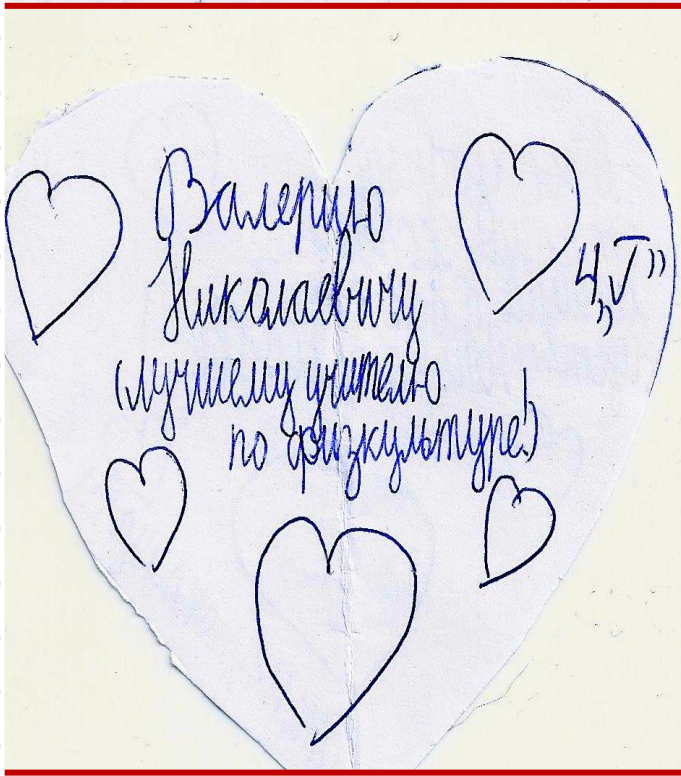 Валерию
Николаевичу
(лучшему учителю
по физкультуре!)
4„Г”